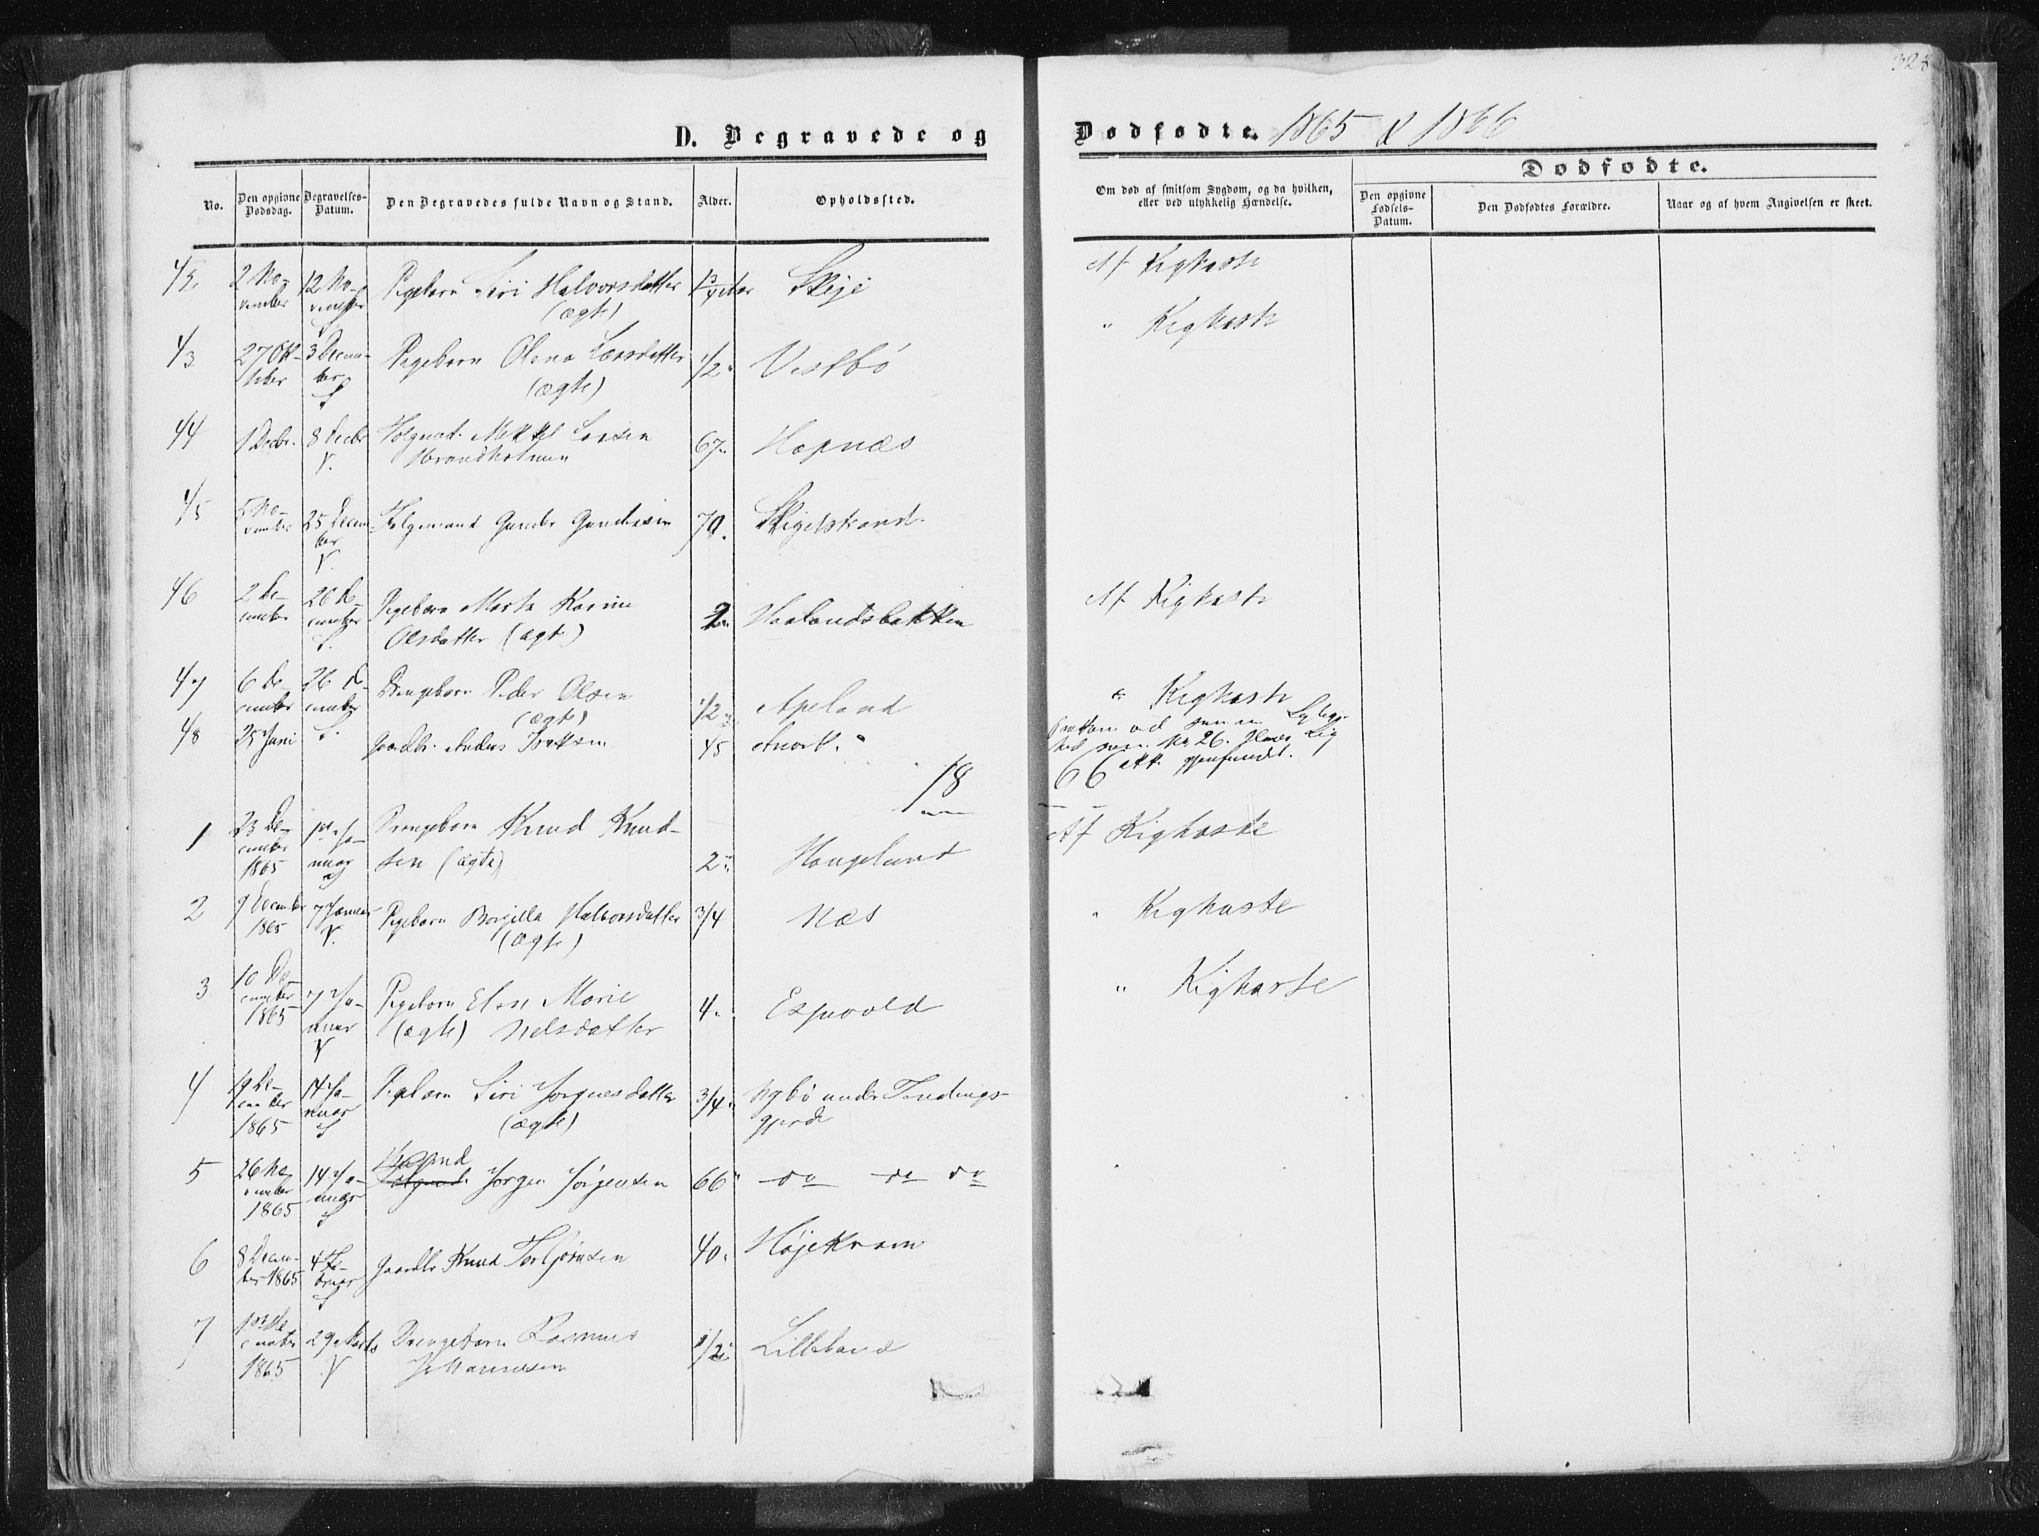 D. Begravede og Dødfødte. 1865 & 1866
Dødfødte.
No.
Den opgivne Dødsdag.
Begravelses-Datum.
Den Begravedes fulde Navn og Stand.
Alder.
Opholdssted.
Om død af smitsom Sygdom, og da hvilken, eller ved ulykkelig Hændelse.
Den opgivne Fødsels-Datum.
Den Dødfødtes Forældre.
Naar og af hvem Angivelsen er skeet.
42 2 November 12 November Pigebarn Siri Halvorsdatter Skeje Af Kighoste
(ægte)
43 27 Oktober 3 December Pigebarn Olena Larsdatter 1/2 Vestbø " Kighoste
(ægte)
44 1 Decbr. 8 Decbr V. Mikkel Larsen 67 Hapnæs
45 November 25 December V. Gunder Gundersen 70.
46 2 December 26 December S. Pigebarn Marta Karine 2 Haalandsbakken Af Kighoste
Olsdatter (ægte)
47 6 December 26 December S. Drengebarn Peder Olsen 1/2 Apeland " Kighoste
(ægte)
48 25 Juni Gaardbr. Anders Isaksen 45 ved samme
som No 26. Hans Lig
ikke gjenfundet.
18 66
1 23 December 1865 1st Januar S Drengebarn Knud Knudsen (ægte) 2 Haugeland Af Kighoste
2 9 December 1865 7 Januar V. Pigebarn Borgilla Halvorsdatter 3/4 Næs " Kighoste
(ægte)
3 10 December 1865 7 Januar V Pigebarn Elen Marie 4 Espevold " Kighoste
(ægte) Nelsdatter
4 19 December 1865 14 Januar S Pigebarn Siri Jorgensdatter 3/4 Nybø under Tendings-
(ægte) gjerde
5 26 November 1865 14 Januar S Jorgen Jörgensen 66 do do do
6 8 December 1865 4 Februar S Gaardbr Knud Torbjørnsen 40 Højekvam
7 1ste December 1865 29 Marts V Drengebarn Rasmus 1/2 Lilleland
Johannesen